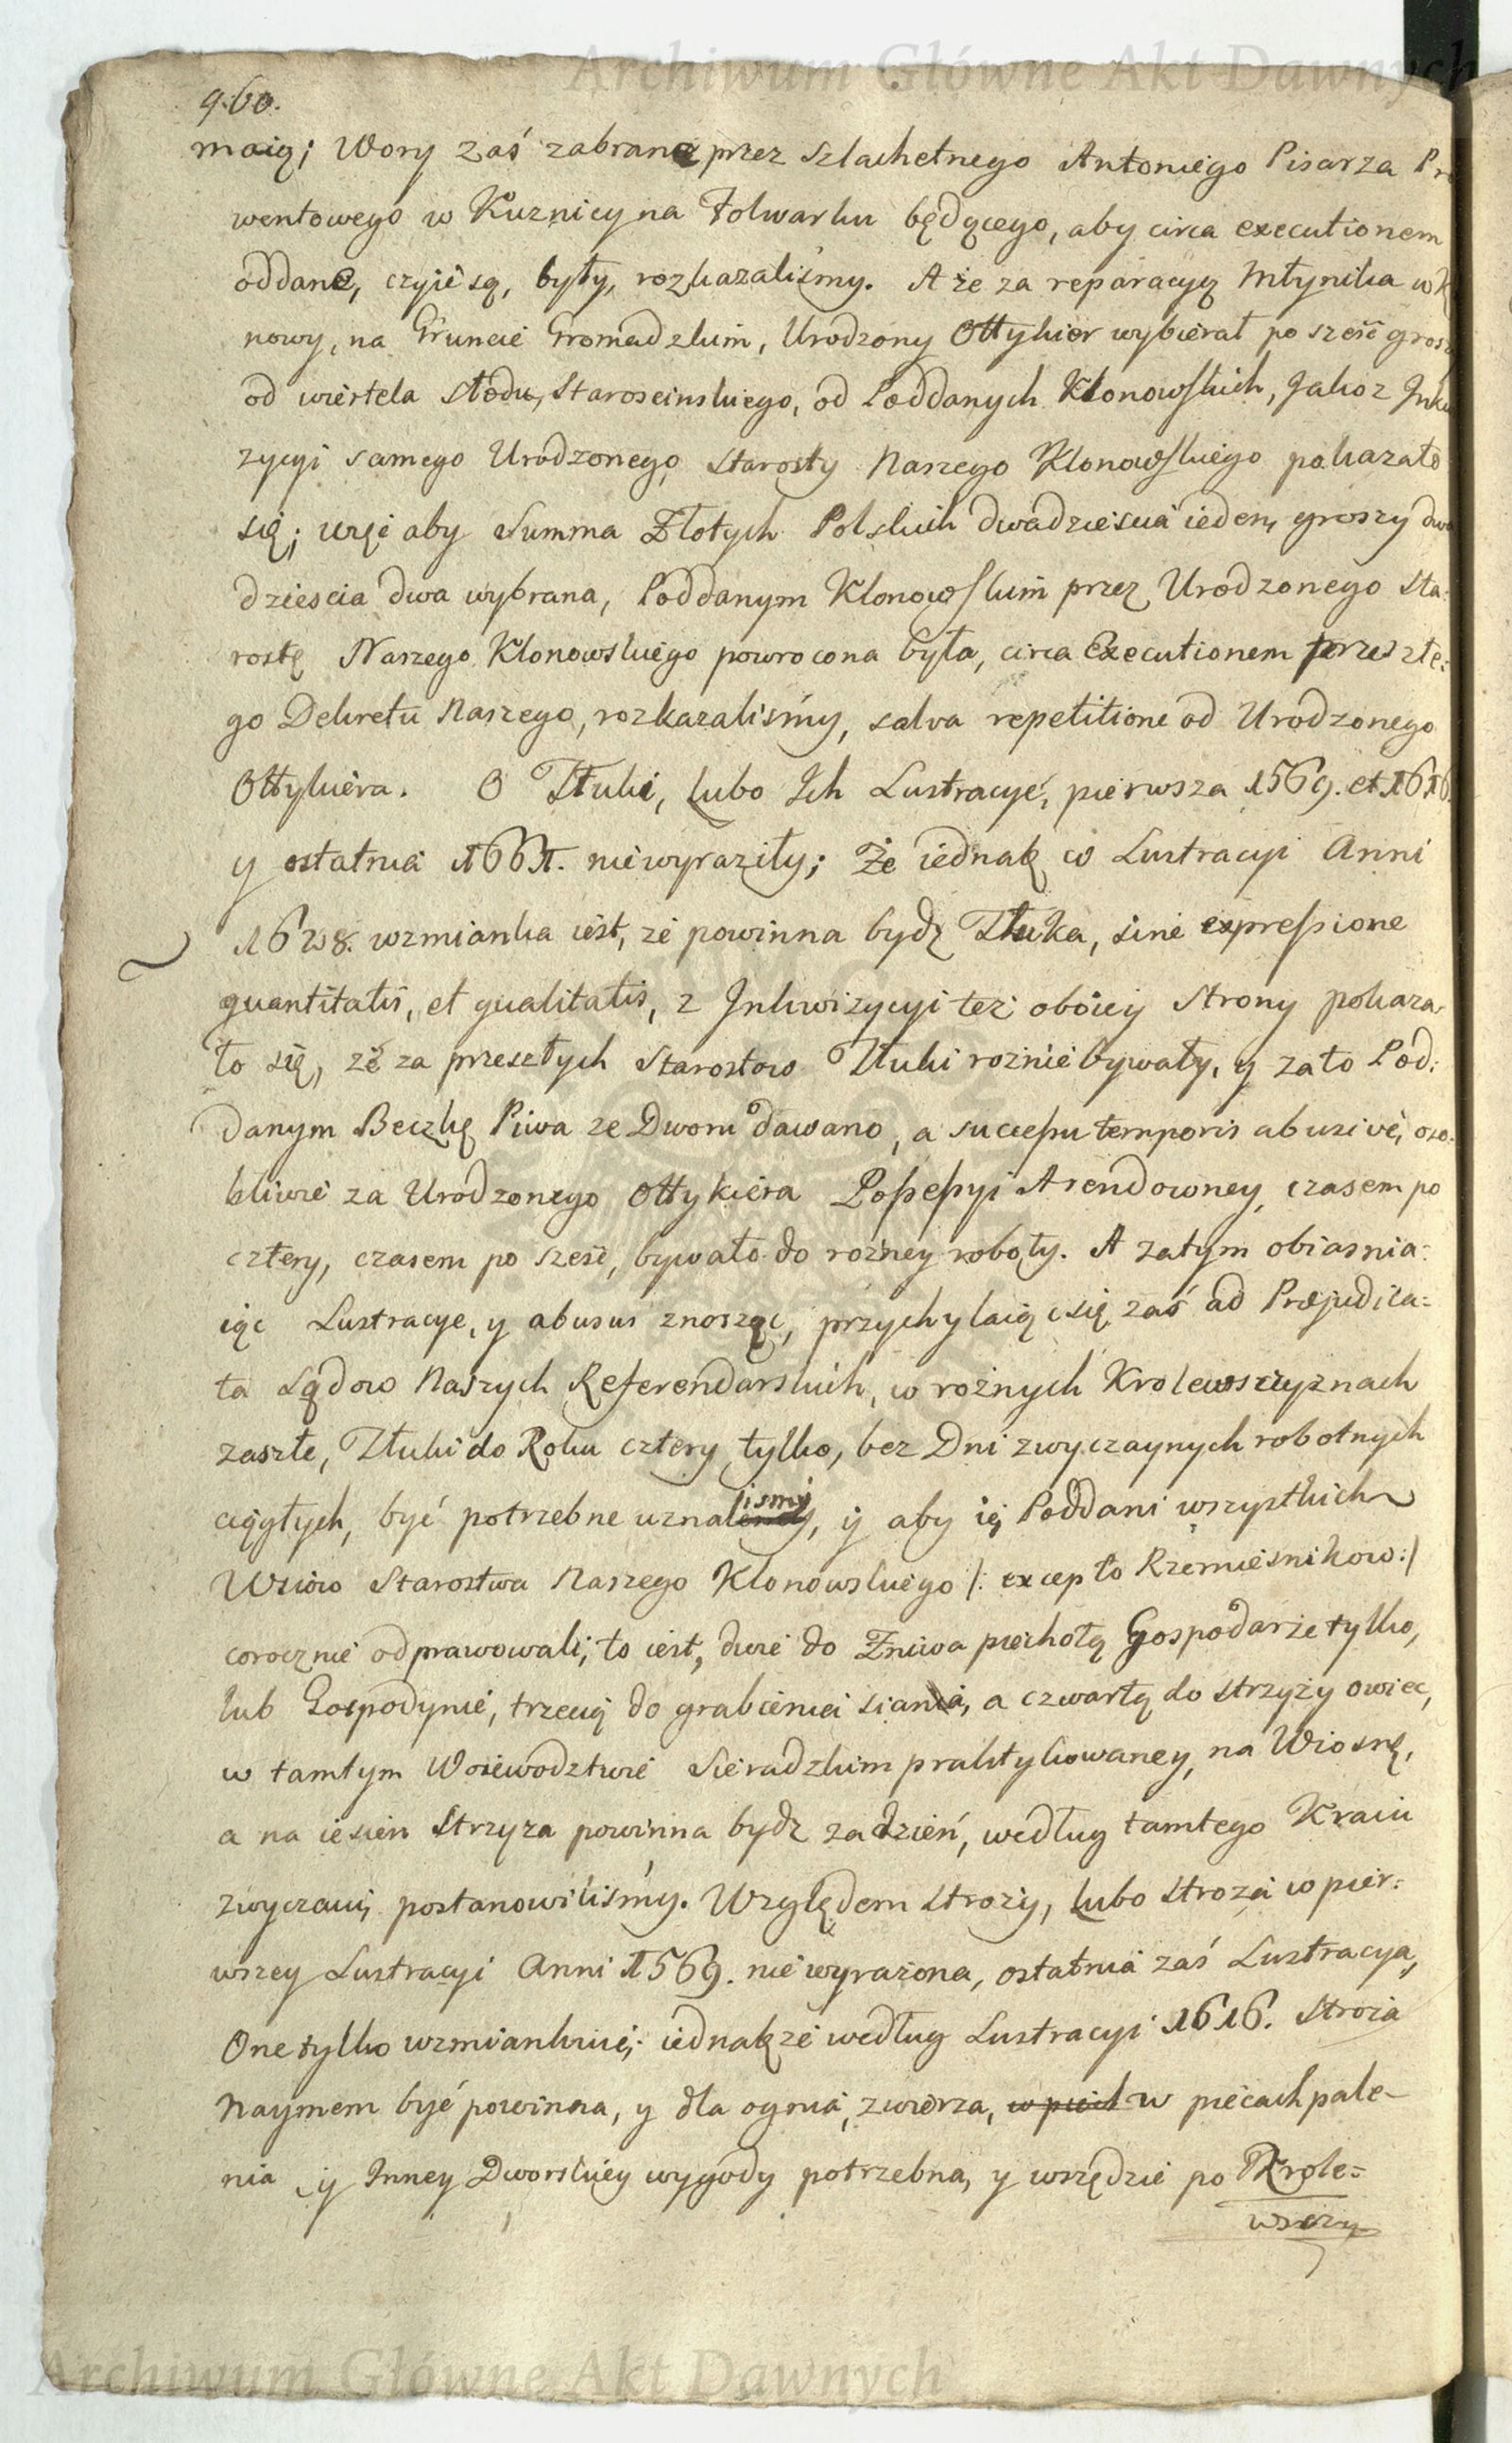 Archiwum Główne Akt Dawnych
960.
maią; Wory zaś zabrane przez Szlachetnego Antoniego Pisarza Pro
wentowego w Kuznicy na Folwarku będącego, aby circa executionem
oddane, czyie są, były, rozkazaliśmy. A że za reparacyą Młynika w K
nowy, na Gruncie Gromadzkim, Urodzony Ottykier wybierał po sześć grosz
od wiertela słodu, Staroscinskiego, od Poddanych Klonowskich, Jako z Inkw
zycyi samego Urodzonego Starosty Naszego Klonowskiego pokazało
się; więc aby Summa Złotych Polskich dwadziescia ieden, groszy dwa
dziescia dwa wybrana, Poddanym Klonowskim przez Urodzonego Sta:
rostę Naszego Klonowskiego powrocona była, circa Executionem ter
go Dekretu Naszego, rozkazaliśmy, salva repetitione od Urodzonego
Ottykiera. O Tłuki, lubo Ich Lustracye, pierwsza 1569. et 1616.
y ostatnia 1661. nie wyraziły; Że iednak w Lustracyi Anni
1628. wzmianka iest, że powinna bydz Tłuka, sine expressione
quantitatis, et qualitatis, z Inkwizycyi też oboiey Strony pokaza-
ło się, że za przeszłych Starostow Tłuki roznie bywały, y za to Pod:
danym Beczkę Piwa ze Dworu dawano, a successu temporis abusive, oso:
bliwie za Urodzonego Ottykiera Possessyi Arendowney, czasem po
cztery, czasem po sześć, bywało do rozney roboty. A zatym obiasnia:
iąc Lustracye, y abusus znosząc, przychylaiąc się zaś ad Præjudica:
ta Sądow Naszych Referendarskich, w rożnych Krolewszczyznach
zaszłe, Tłuki do Roku cztery tylko, bez Dni zwyczaynych robotnych
ciągłych, być potrzebne uznalismy, y aby ie Poddani wszystkich
Wsiow Starostwa Naszego Klonowskiego /: excepto Rzemieśnikow :/
corocznie odprawowali; to iest, dwie do Żniwa piechotą Gospodarze tylko,
lub Gospodynie, trzecią do grabienia siana, a czwartą do strzyży owiec,
w tamtym Woiewodztwie Sieradzkim praktykowaney, na Wiosnę,
a na iesień Strzyża powinna bydz za dzień, według tamtego Kraiu
zwyczaiu, postanowiliśmy. Względem stroży, lubo stroża w pier:
wszey Lustracyi Anni 1569. nie wyrażona, ostatnia zaś Lustracya,
One tylko wzmiankuie; iednakże według Lustracyi 1616. Stroża
Naymem być powinna, y dla ognia, zwierza, w piech w piecach pale-
nia y Inney Dworskiey wygody potrzebna, y wszędzie po Krole=
wszczy
Archiwum Główne Akt Dawnych